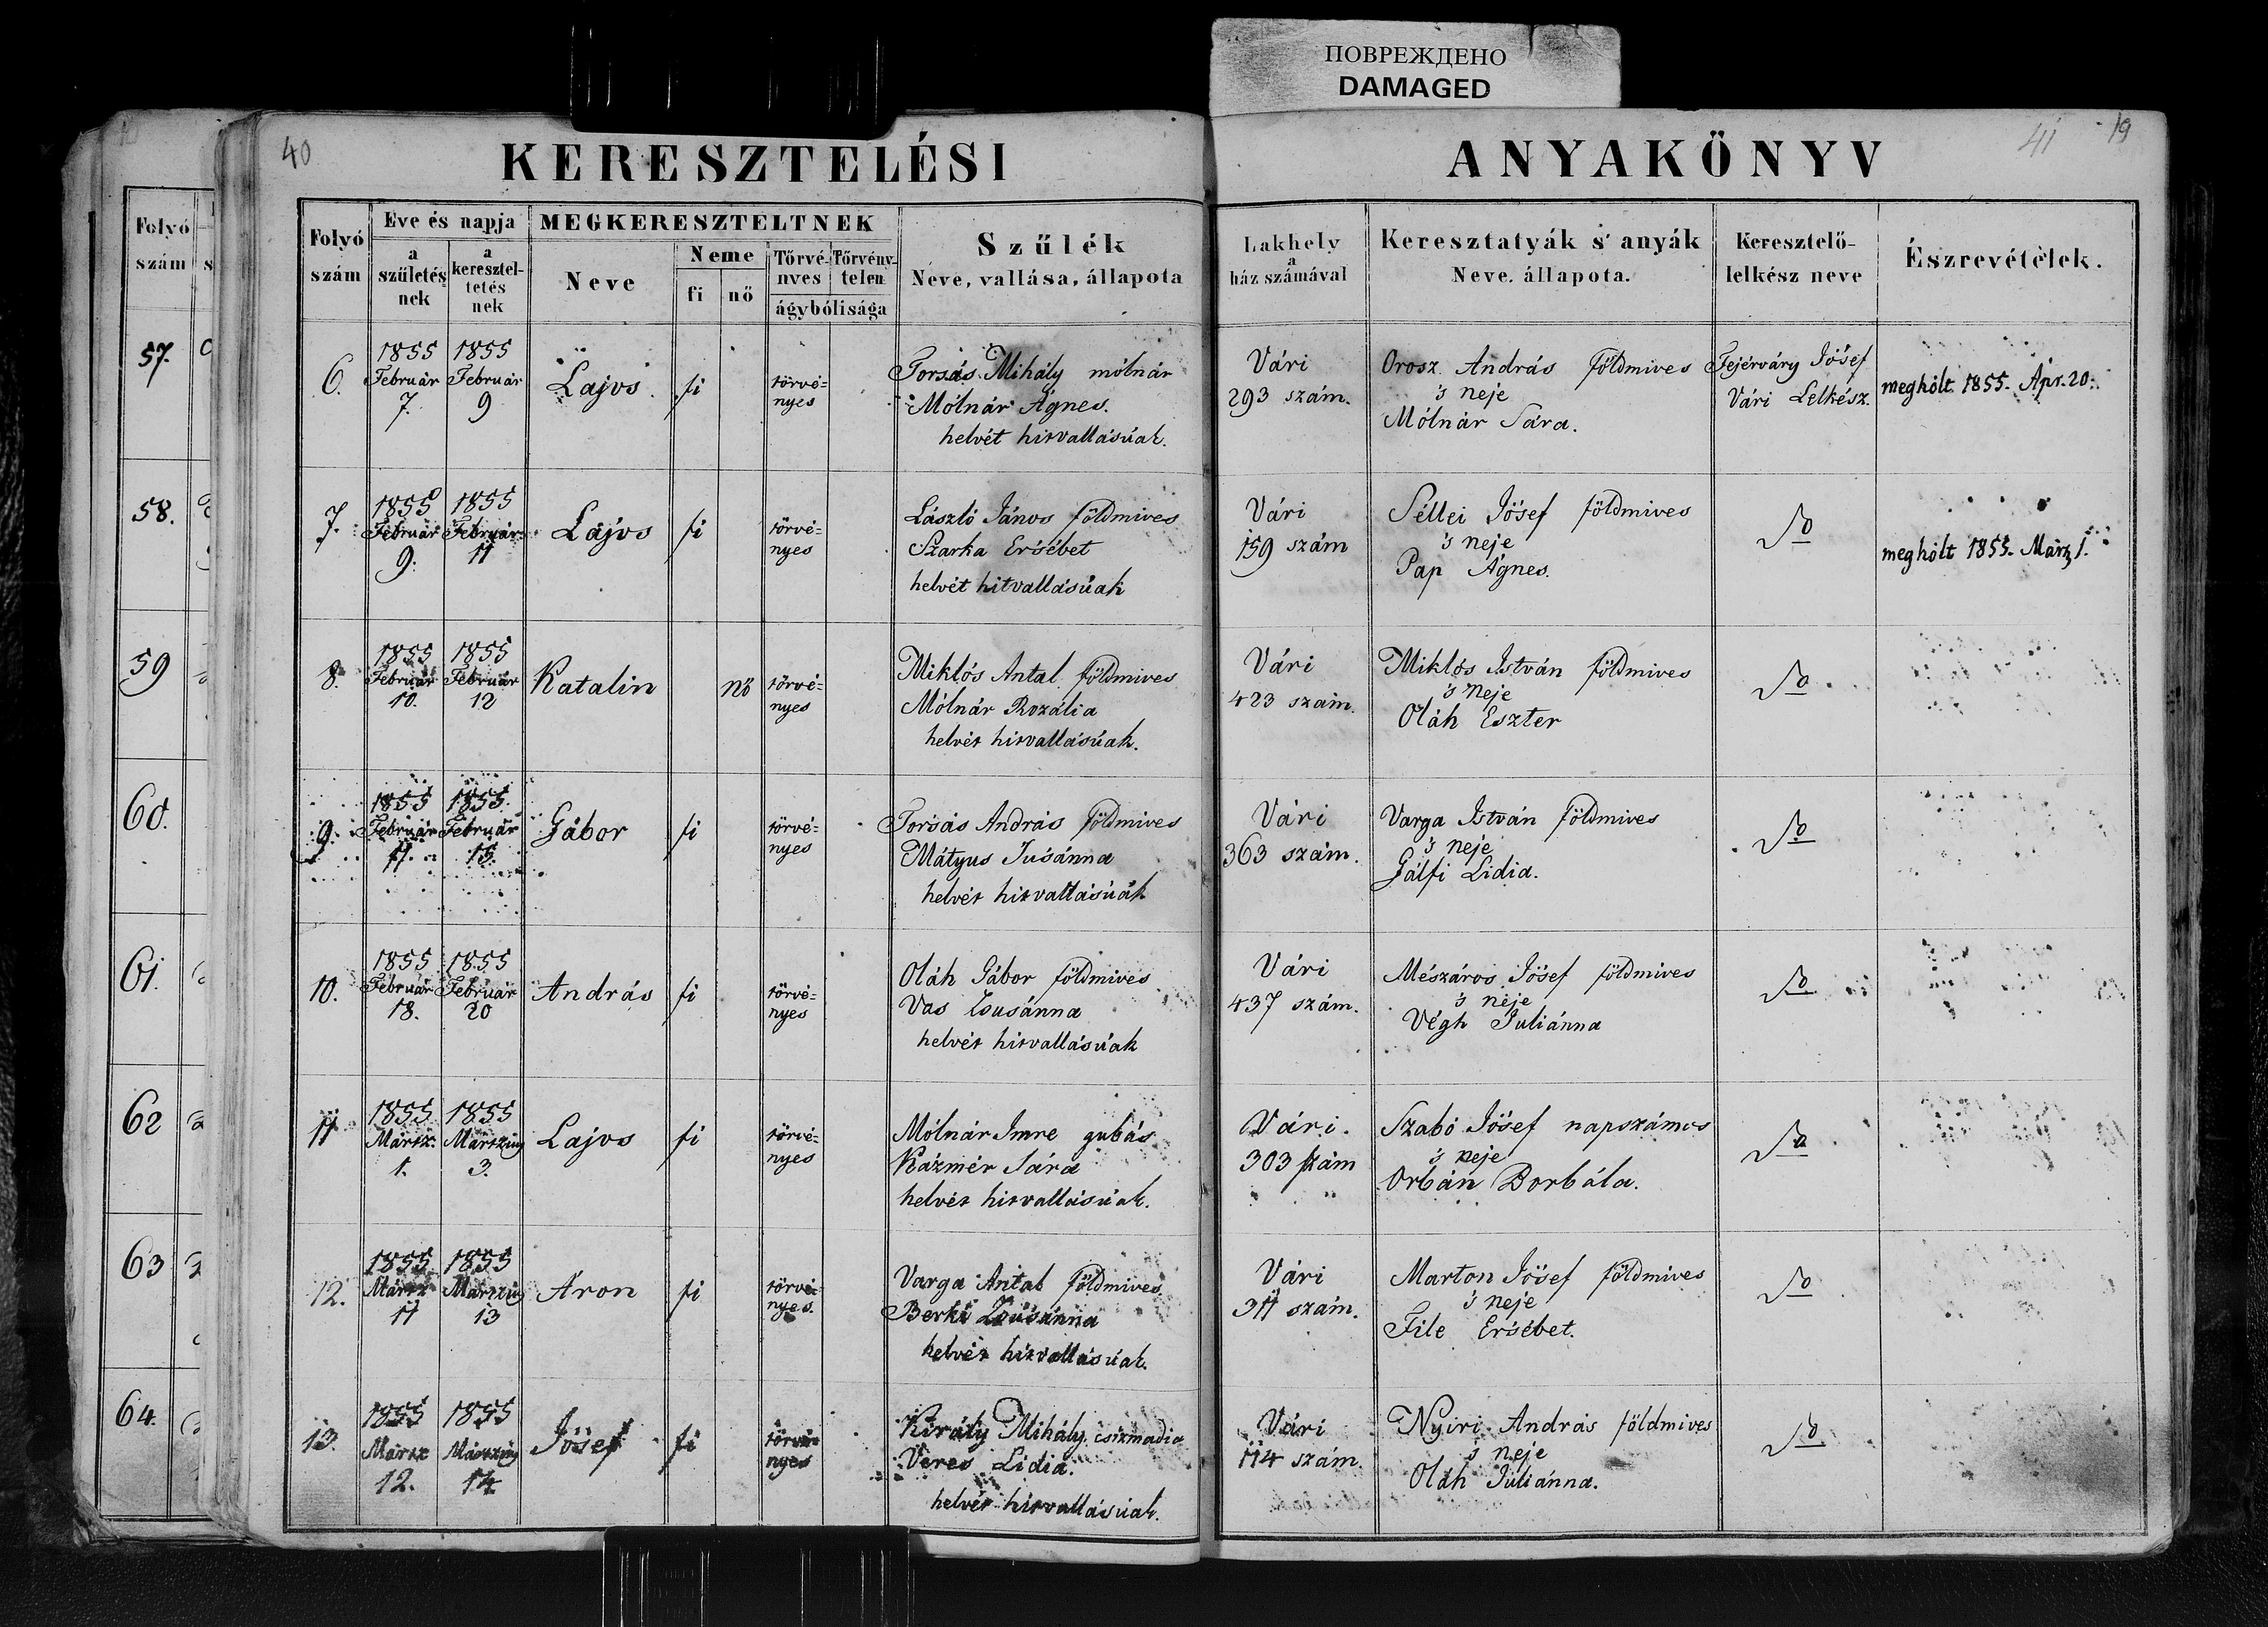 ПОВРЕЖДЕНО
DAMAGED
40
KERESZTELÉSI
ANYAKÖNYV
41
19
Folyó
szám
57.
58.
59
60.
61.
62
63
64.
Folyó
szám
Eve és napja
a
születés
nek
a
keresztel-
tetés
nek
MEGKERESZTELTNEK
Neve
Neme
fi
nő
Törvé-
nyes
Törvény-
telen
ágybólisága
Szűlék
Neve, vallása, állapota
Lakhely
a
ház számával
Keresztatyák s' anyák
Neve. állapota.
Keresztelő-
lelkész neve
Észrevételek.
6.
1855
Február
7.
1855
Február
9
Lajos
fi
törvé=
nyes
Torsás Mihály mólnár
Mólnár Ágnes.
helvét hitvallásúak.
Vári
293 szám.
Orosz András földmives
's neje
Mólnár Sára.
Fejérváry Jósef
Vári Lelkész.
meghólt 1855. Ápr. 20.
7.
1855
Február
9.
1855
Február
11
Lajos
fi
törvé=
nyes
László János földmives
Szarka Ersébet
helvét hitvallásúak
Vári
159 szám
Séllei Jósef földmives
's neje
Pap Ágnes.
Do
meghólt 1855. Márz 1.
8.
1855
Február
10.
1855
Február
12
Katalin
nő
törvé=
nyes
Miklós Antal földmives
Mólnár Rozália
helvét hitvallásúak.
Vári
423 szám.
Miklós István földmives
's neje
Oláh Eszter
Do
9.
1855
Február
11.
1855.
Február
13.
Gábor
fi
törvé=
nyes
Torsás András földmives
Mátyus Susánna
helvét hitvallásúak
Vári
363 szám.
Varga István földmives
's neje
Gálfi Lidia.
Do
10.
1855
Február
18.
1855
Február
20
András
fi
törvé=
nyes
Oláh Gábor földmives
Vas Zsusánna
helvét hitvallásúak
Vári
437 szám.
Mészáros Jósef földmives
's neje
Végh Juliánna
Do
11
1855
Mártz.
1.
1855
Mártzius
3.
Lajos
fi
törvé=
nyes
Mólnár Imre gubás
Kázmér Sára
helvét hitvallásúak.
Vári.
303 szám
Szabó Jósef napszámos
's neje
Orbán Borbála.
Do
12.
1855
Mártz
11
1855
Mártzius
13
Áron
fi
törvé=
nyes.
Varga Antal földmives
Berki Zsusánna
helvét hitvallásúak.
Vári
311 szám.
Marton Jósef földmives
's neje
File Ersébet.
Do
13.
1855
Mártz
12.
1855
Mártzius
14
Jósef
fi
törvé=
nyes
Király Mihály csizmadia
Veres Lidia.
helvét hitvallásúak.
Vári
114 szám.
Nyiri András földmives
's neje
Oláh Juliánna.
Do